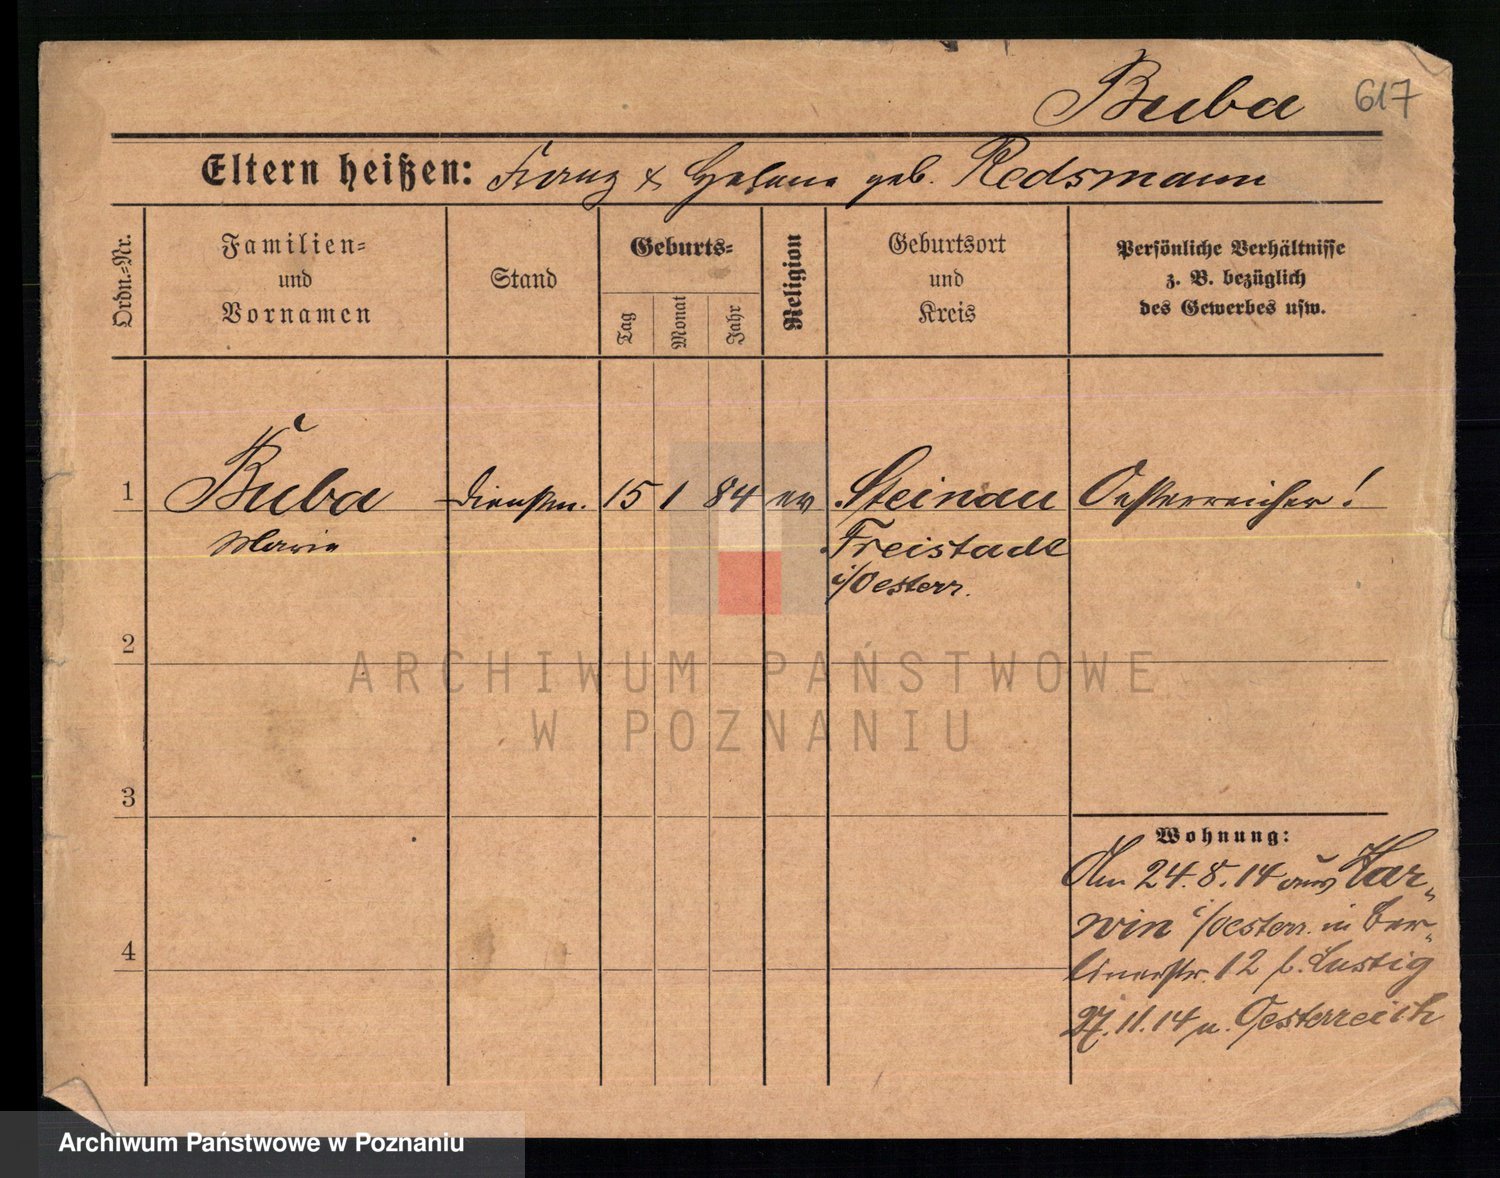 Buba 617
Eltern heißen: Franz & Helene geb. Redsmann
Ordn.=Nr.
Familien=
und
Vornamen
Stand
Geburts=
Tag
Monat
Jahr
Religion
Geburtsort
und
Kreis
Persönliche Verhältnisse
z. B. bezüglich
des Gewerbes usw.
1 Buba Dienstm. 15 1 84 ev Steinau Oesterreicher!
Marie Freistadt
i/Oesterr.
2
3
4
Wohnung:
Am 24.8.14 aus Kar-
win i/Oesterr. in Ber-
linerstr. 12 b. Lustig
27.11.14 n. Oesterreich
ARCHIWUM PAŃSTWOWE
W POZNANIU
Archiwum Państwowe w Poznaniu